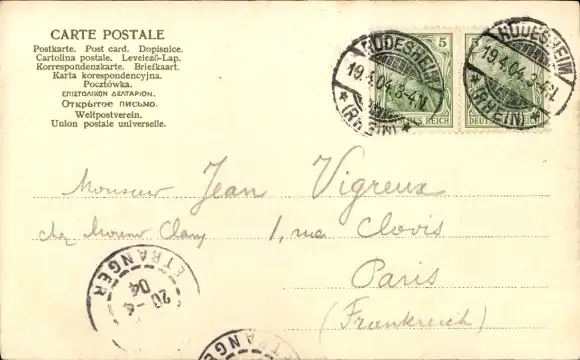 CARTE POSTALE
Postkarte. Post card. Dopisnice.
Cartolina postale. Levelező-Lap.
Korrespondenzkarte. Briefkaart.
Karta korespondencyjna.
Pocztówka.
ΕΠΙΣΤΟΛΙΚΟΝ ΔΕΛΤΑΡΙΟΝ.
Открытое письмо.
Weltpostverein.
Union postale universelle.
5
5
DEUTSCHES REICH
RÜDESHEIM
19.4.04.3-4.N.
*(RHEIN)*
RÜDESHEIM
19.4.04.3-4.N.
*(RHEIN)*
Monsieur Jean Vigreux
chez 1, rue Clovis
Paris
(Frankreich)
ETRANGER
20-4
04
ETRANGER